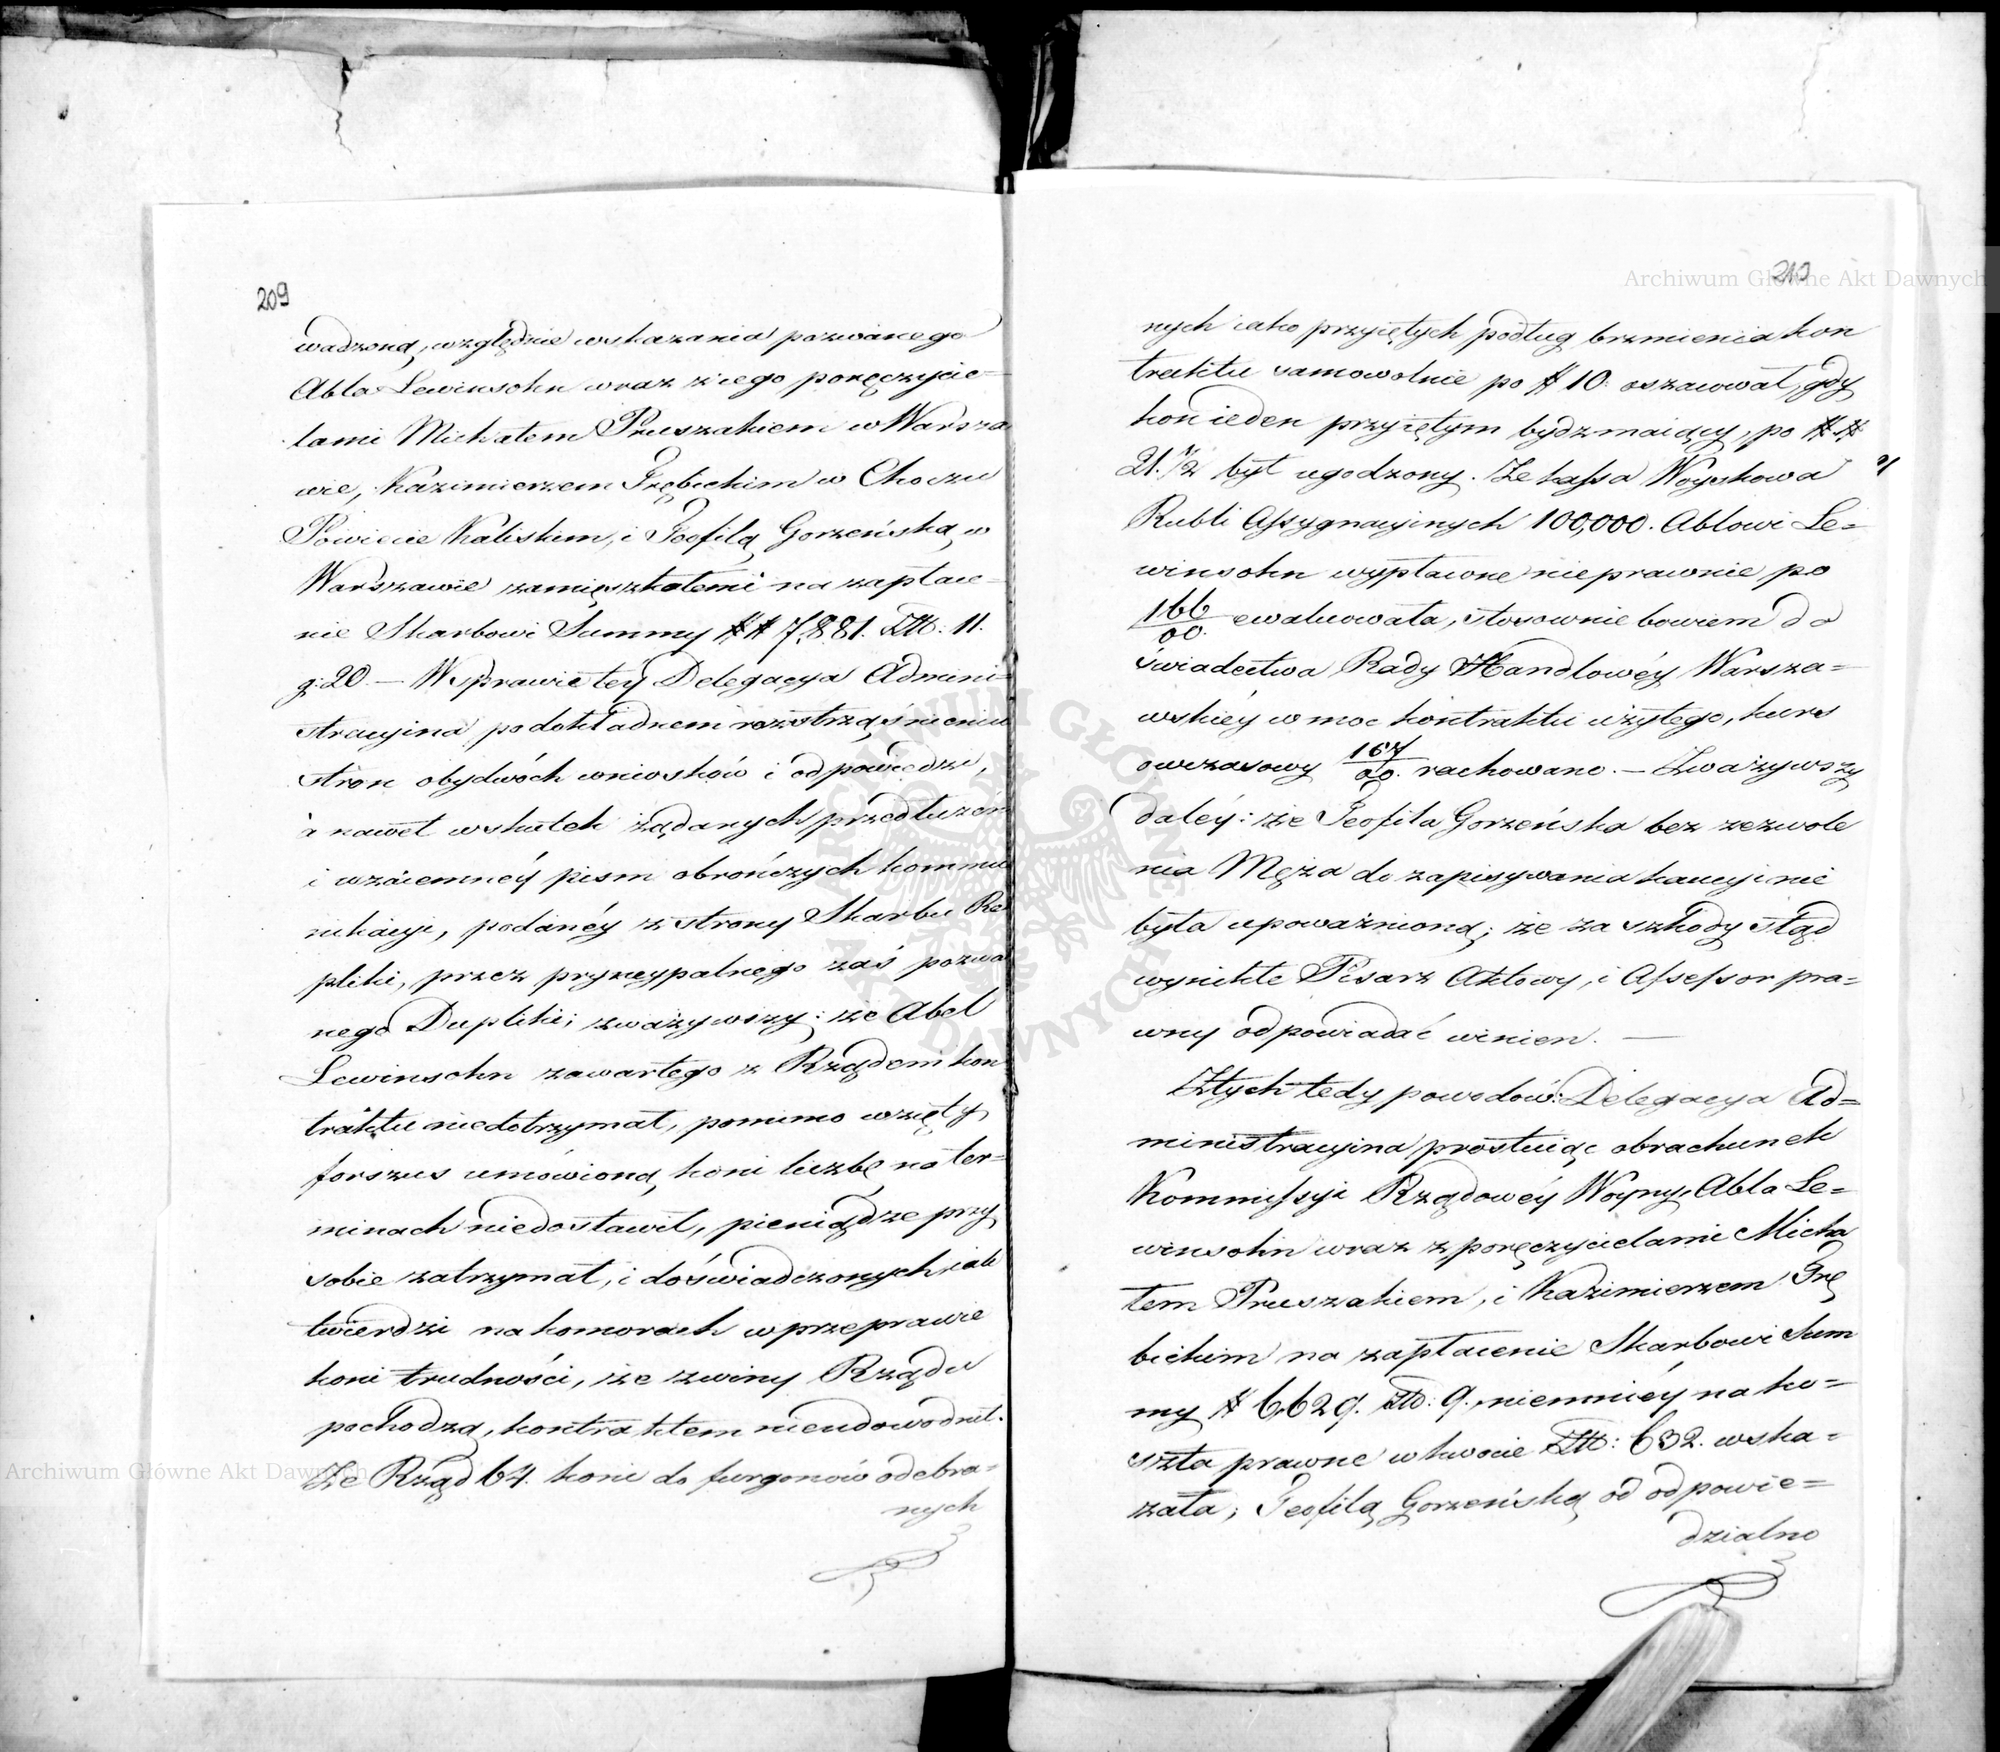 209
wadzoną, względzie wskazania pozwanego
Abla Lewinsohn wraz z iego poręczycie=
lami Michałem Pruszakiem w Warsza
wie, Kazimierzem Grębickim w Choczu
Powiecie Kaliskim, i Teofilą Gorzeńską w
Warszawie zamięszkałemi na zapłace=
nie Skarbowi Summy ## 7,881. Złł: 11.
g: 20. — W sprawie tey Delegacya Admini=
stracyina po dokładnem rozstrząśnieniu
stron obydwóch wniosków i odpowiedzi,
a nawet wskutek żądanych przedłużeń
i wzaiemnéy pism obrończych kommu
nikacyi, podanéy z strony Skarbu Re
pliki, przez pryncypalnego zaś pozwa
nego Dupliki; zważywszy: że Abel
Lewinsohn zawartego z Rządem kon
traktu niedotrzymał, pomimo wzięty
forszus umówioną koni liczbę na ter=
minach niedostawił, pieniądze przy
sobie zatrzymał, i doświadczonych iak
twierdzi na komorach w przeprawie
koni trudności, że z winy Rządu
pochodzą, kontraktem nieudowodnił.
Że Rząd 64. koni do furgonów odebra=
nych
210
nych iako przyiętych podług brzmienia kon
traktu samowolnie po # 10. oszacował, gdy
koń ieden przyiętym bydź maiący, po ##
21. 1/2 był ugodzony. Że kassa Woyskowa
Rubli Assygnacyinych 100,000. Ablowi Le=
winsohn wypłacone nieprawnie po
166/00. ewaluowała, stosownie bowiem do
świadectwa Rady Handlowéy Warsza=
wskiéy w moc kontraktu użytego, kurs
owczasowy 167/00. rachowano. — Zważywszy
daléy: że Teofila Gorzeńska bez zezwole
nia Męża do zapisywania kaucyi nie
była upoważnioną; że za szkody stąd
wynikłe Pisarz Aktowy, i Assessor pra=
wny odpowiadać winien. —
Z tych tedy powodów: Delegacya Ad=
ministracyina prostuiąc obrachunek
Kommissyi Rządowéy Woyny, Abla Le=
winsohn wraz z poręczycielami Micha
łem Pruszakiem, i Kazimierzem Grę
bickim na zapłacenie Skarbowi Sum
my # 6,629. Złł: 9. niemniéy na ko=
szta prawne w kwocie Złł: 632. wska=
zała; Teofilą Gorzeńską od odpowie=
dzialno
Archiwum Główne Akt Dawnych
Archiwum Główne Akt Dawnych
ARCHIWUM GŁÓWNE AKT DAWNYCH